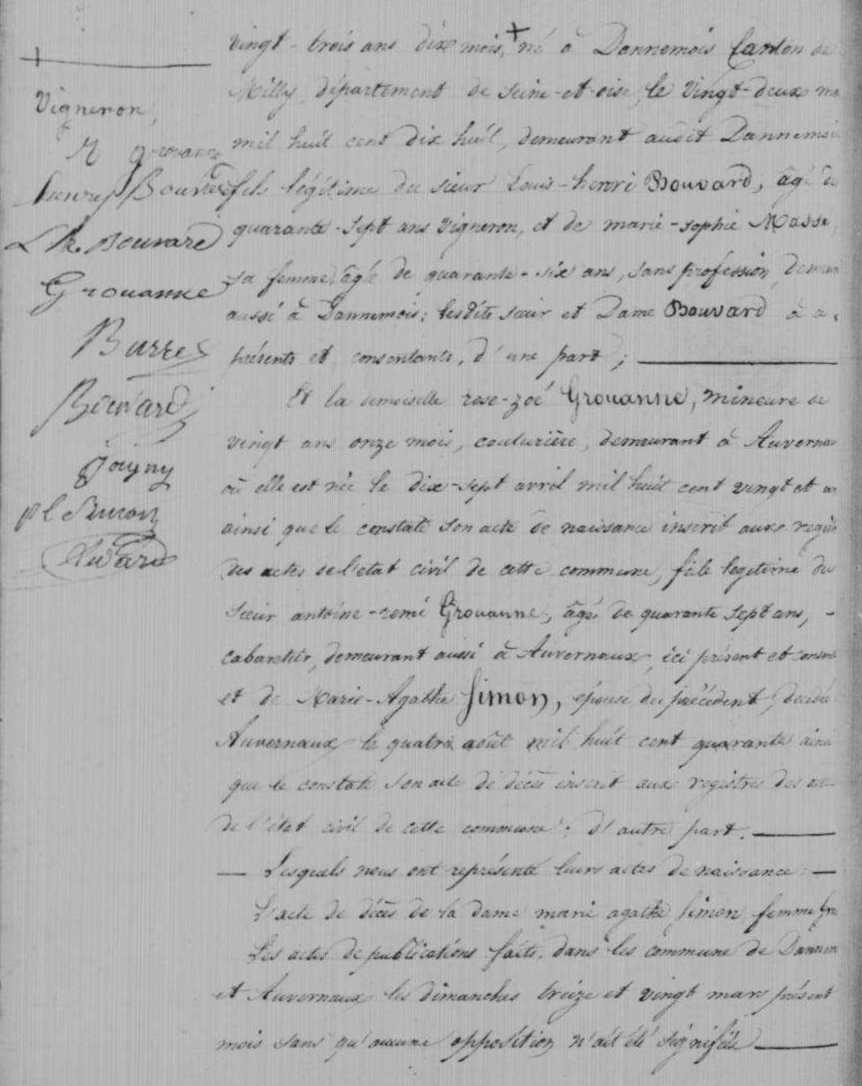 Vigneron,
R grouanne
henry Bouvard
L h. Bouvard
Grouanne
Bouvard
Joigny
Simon
vingt-trois ans dix mois, + né à Dannemois Canton de
Milly, département de Seine-et-oise, le vingt-deux ma
mil huit cent dix huit, demeurant audit Dannemoi
fils légitime du sieur Louis-henri Bouvard, âgé de
quarante-sept ans vigneron, et de marie-sophie Massé
sa femme âgée de quarante-six ans, sans profession, demeu
aussi à Dannemois; lesdits sieur et Dame Bouvard à ce
présents et consentants, d'une part;
Et la demoiselle rose-zoé Grouanne, mineure de
vingt ans onze mois, couturière, demeurant à Auverna
où elle est née le dix-sept avril mil huit cent vingt et un
ainsi que le constate son acte de naissance inscrit aux regis
des actes de l'état civil de cette commune, fille légitime du
sieur antoine-remi Grouanne, âgé de quarante sept ans, -
cabaretier, demeurant aussi à Auvernaux, ici présent et consen
et de Marie-Agathe Simon, épouse du précédent, décédée
Auvernaux le quatre août mil huit cent quarante ainsi
que le constate son acte de décès inscrit aux registres des ac
de l'état civil de cette commune; d'autre part.
— Lesquels nous ont représenté leurs actes de naissance: —
L'acte de décès de la dame marie agathe Simon femme Gro
Les actes de publications faits dans les commune de Dannem
et Auvernaux les dimanches treize et vingt mars présent
mois sans qu'aucune opposition n'ait été signifiée